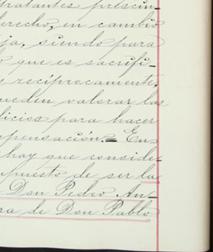 tratantes prescin-
derecho, en cambio
ja, siendo para
que es sacrifi-
y recíprocamente,
pueden valorar los
ficios para hacer
pensación. En
hay que conside-
puesto de ser la
Don Pedro An-
ra de Don Pablo